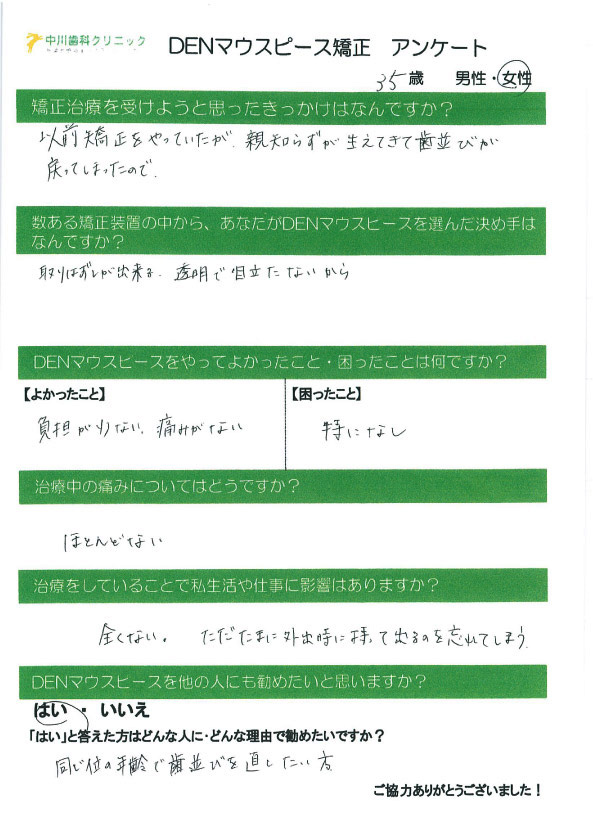 中川歯科クリニック
DENマウスピース矯正　アンケート
35歳　男性・女性
矯正治療を受けようと思ったきっかけはなんですか？
以前矯正をやっていたが、親知らずが生えてきて歯並びが
戻ってしまったので。
数ある矯正装置の中から、あなたがDENマウスピースを選んだ決め手は
なんですか？
取りはずしが出来る、透明で目立たないから
DENマウスピースをやってよかったこと・困ったことは何ですか？
【よかったこと】
負担が少ない、痛みがない
【困ったこと】
特になし
治療中の痛みについてはどうですか？
ほとんどない
治療をしていることで私生活や仕事に影響はありますか？
全くない。　ただたまに外出時に持って出るのを忘れてしまう。
DENマウスピースを他の人にも勧めたいと思いますか？
はい・いいえ
「はい」と答えた方はどんな人に・どんな理由で勧めたいですか？
同じ位の年齢で歯並びを直したい方。
ご協力ありがとうございました！